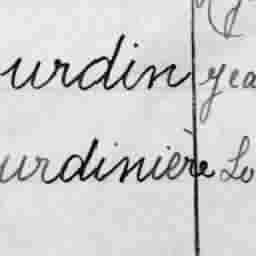 urdin yea
urdinière Lo